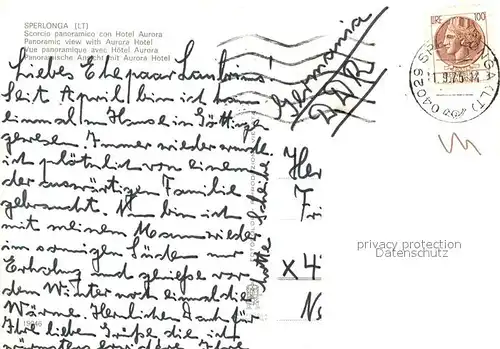 SPERLONGA [LT]
Scorcio panoramico con Hotel Aurora
Panoramic view with Aurora Hotel
Vue panoramique avec Hôtel Aurora
Panoramische Ansicht mit Aurora Hotel
Liebes Ehepaar
Seit April bin ich kaum
einmal im Hause in Göttingen
gewesen. Immer wieder wurde
ich plötzlich von einem
der auswärtigen Familie
gebraucht. Nun bin ich
mit meinem Mann wieder
im sonnigen Süden zur
Erholung und genieße vor
dem Winter noch einmal die
Wärme. Herzlichen Dank für
Ihre lieben Grüße die ich
Ihre
Lotte Scheibe
Germania
DDR
LIRE 100
04029 SPERLONGA (LT)
11.9.75
Her
Fri
x 4
privacy protection
Datenschutz